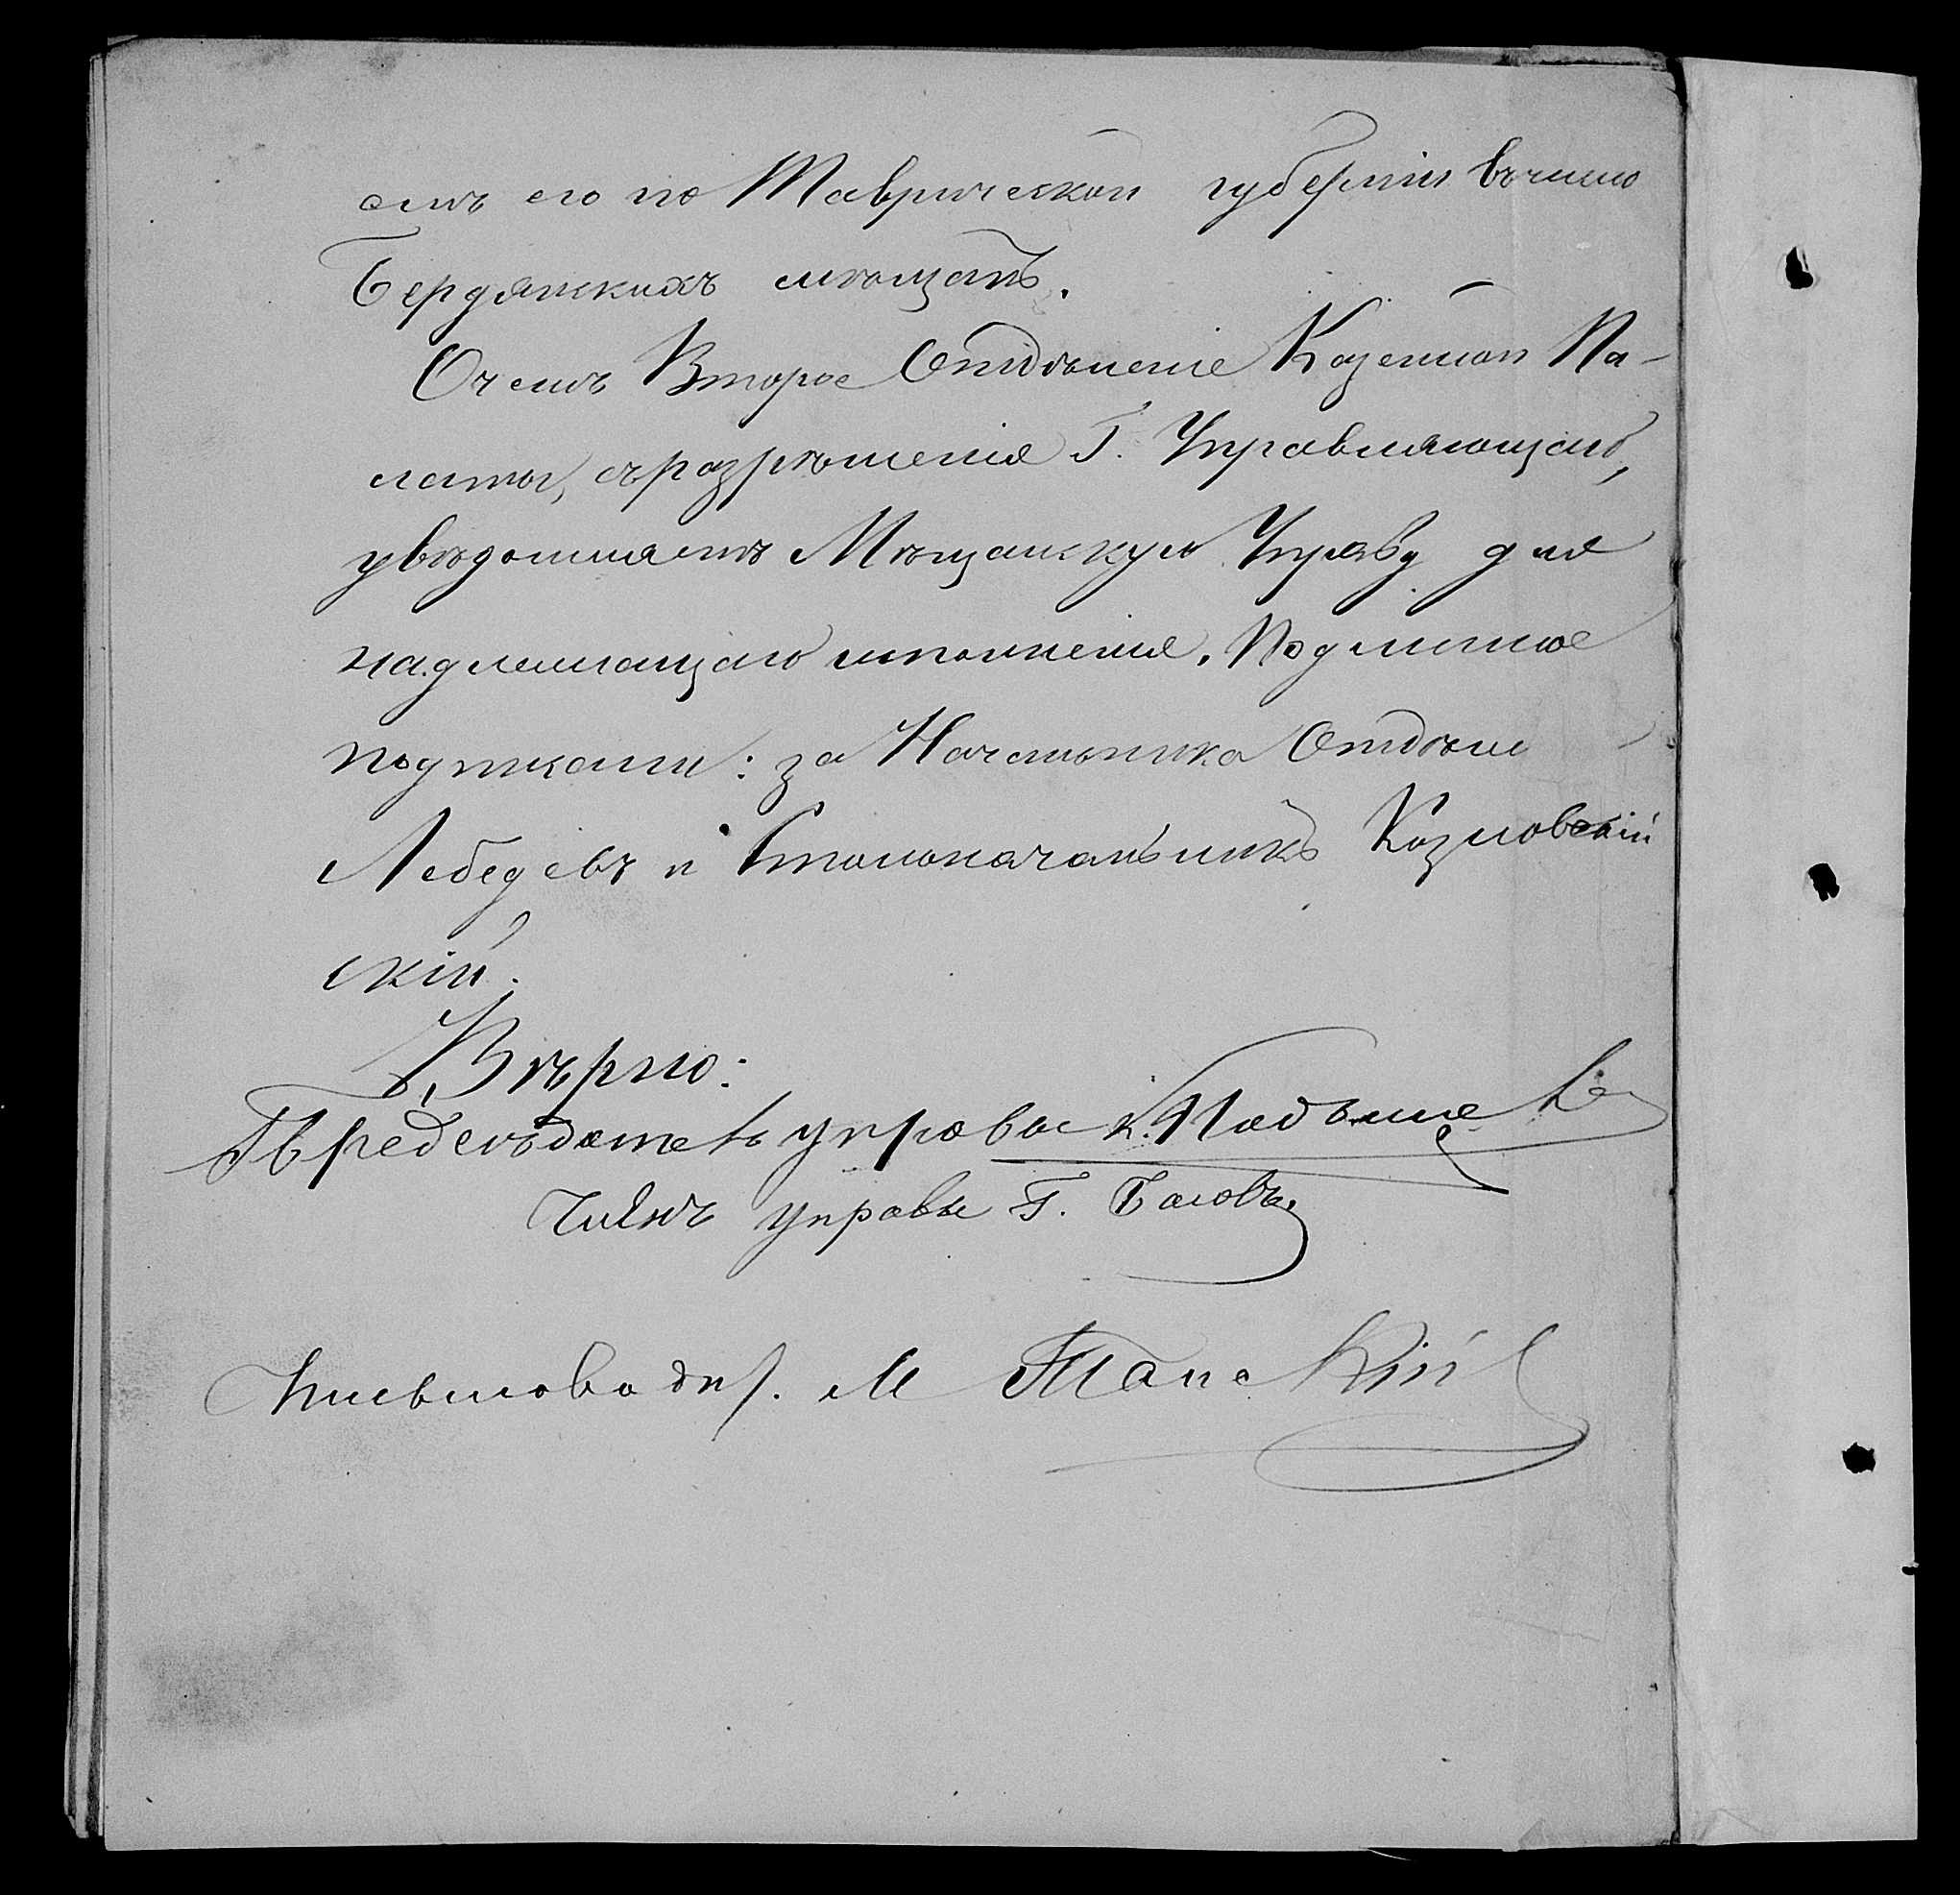 етъ его по Таврической губерніи въ число
Бердянскихъ мѣщанъ.
О чемъ Второе Отдѣленіе Казенной Па-
латы, съ разрѣшенія Г. Управляющаго,
увѣдомляетъ Мѣщанскую Управу для
надлежащаго исполненія. Подлинное
подписали: за Начальника Отдѣле
Лебедевъ и Столоначальникъ Козловскій
скій.
Вѣрно:
Предсѣдатель управы
Членъ управы Г. Баловъ
Письмовод др. М